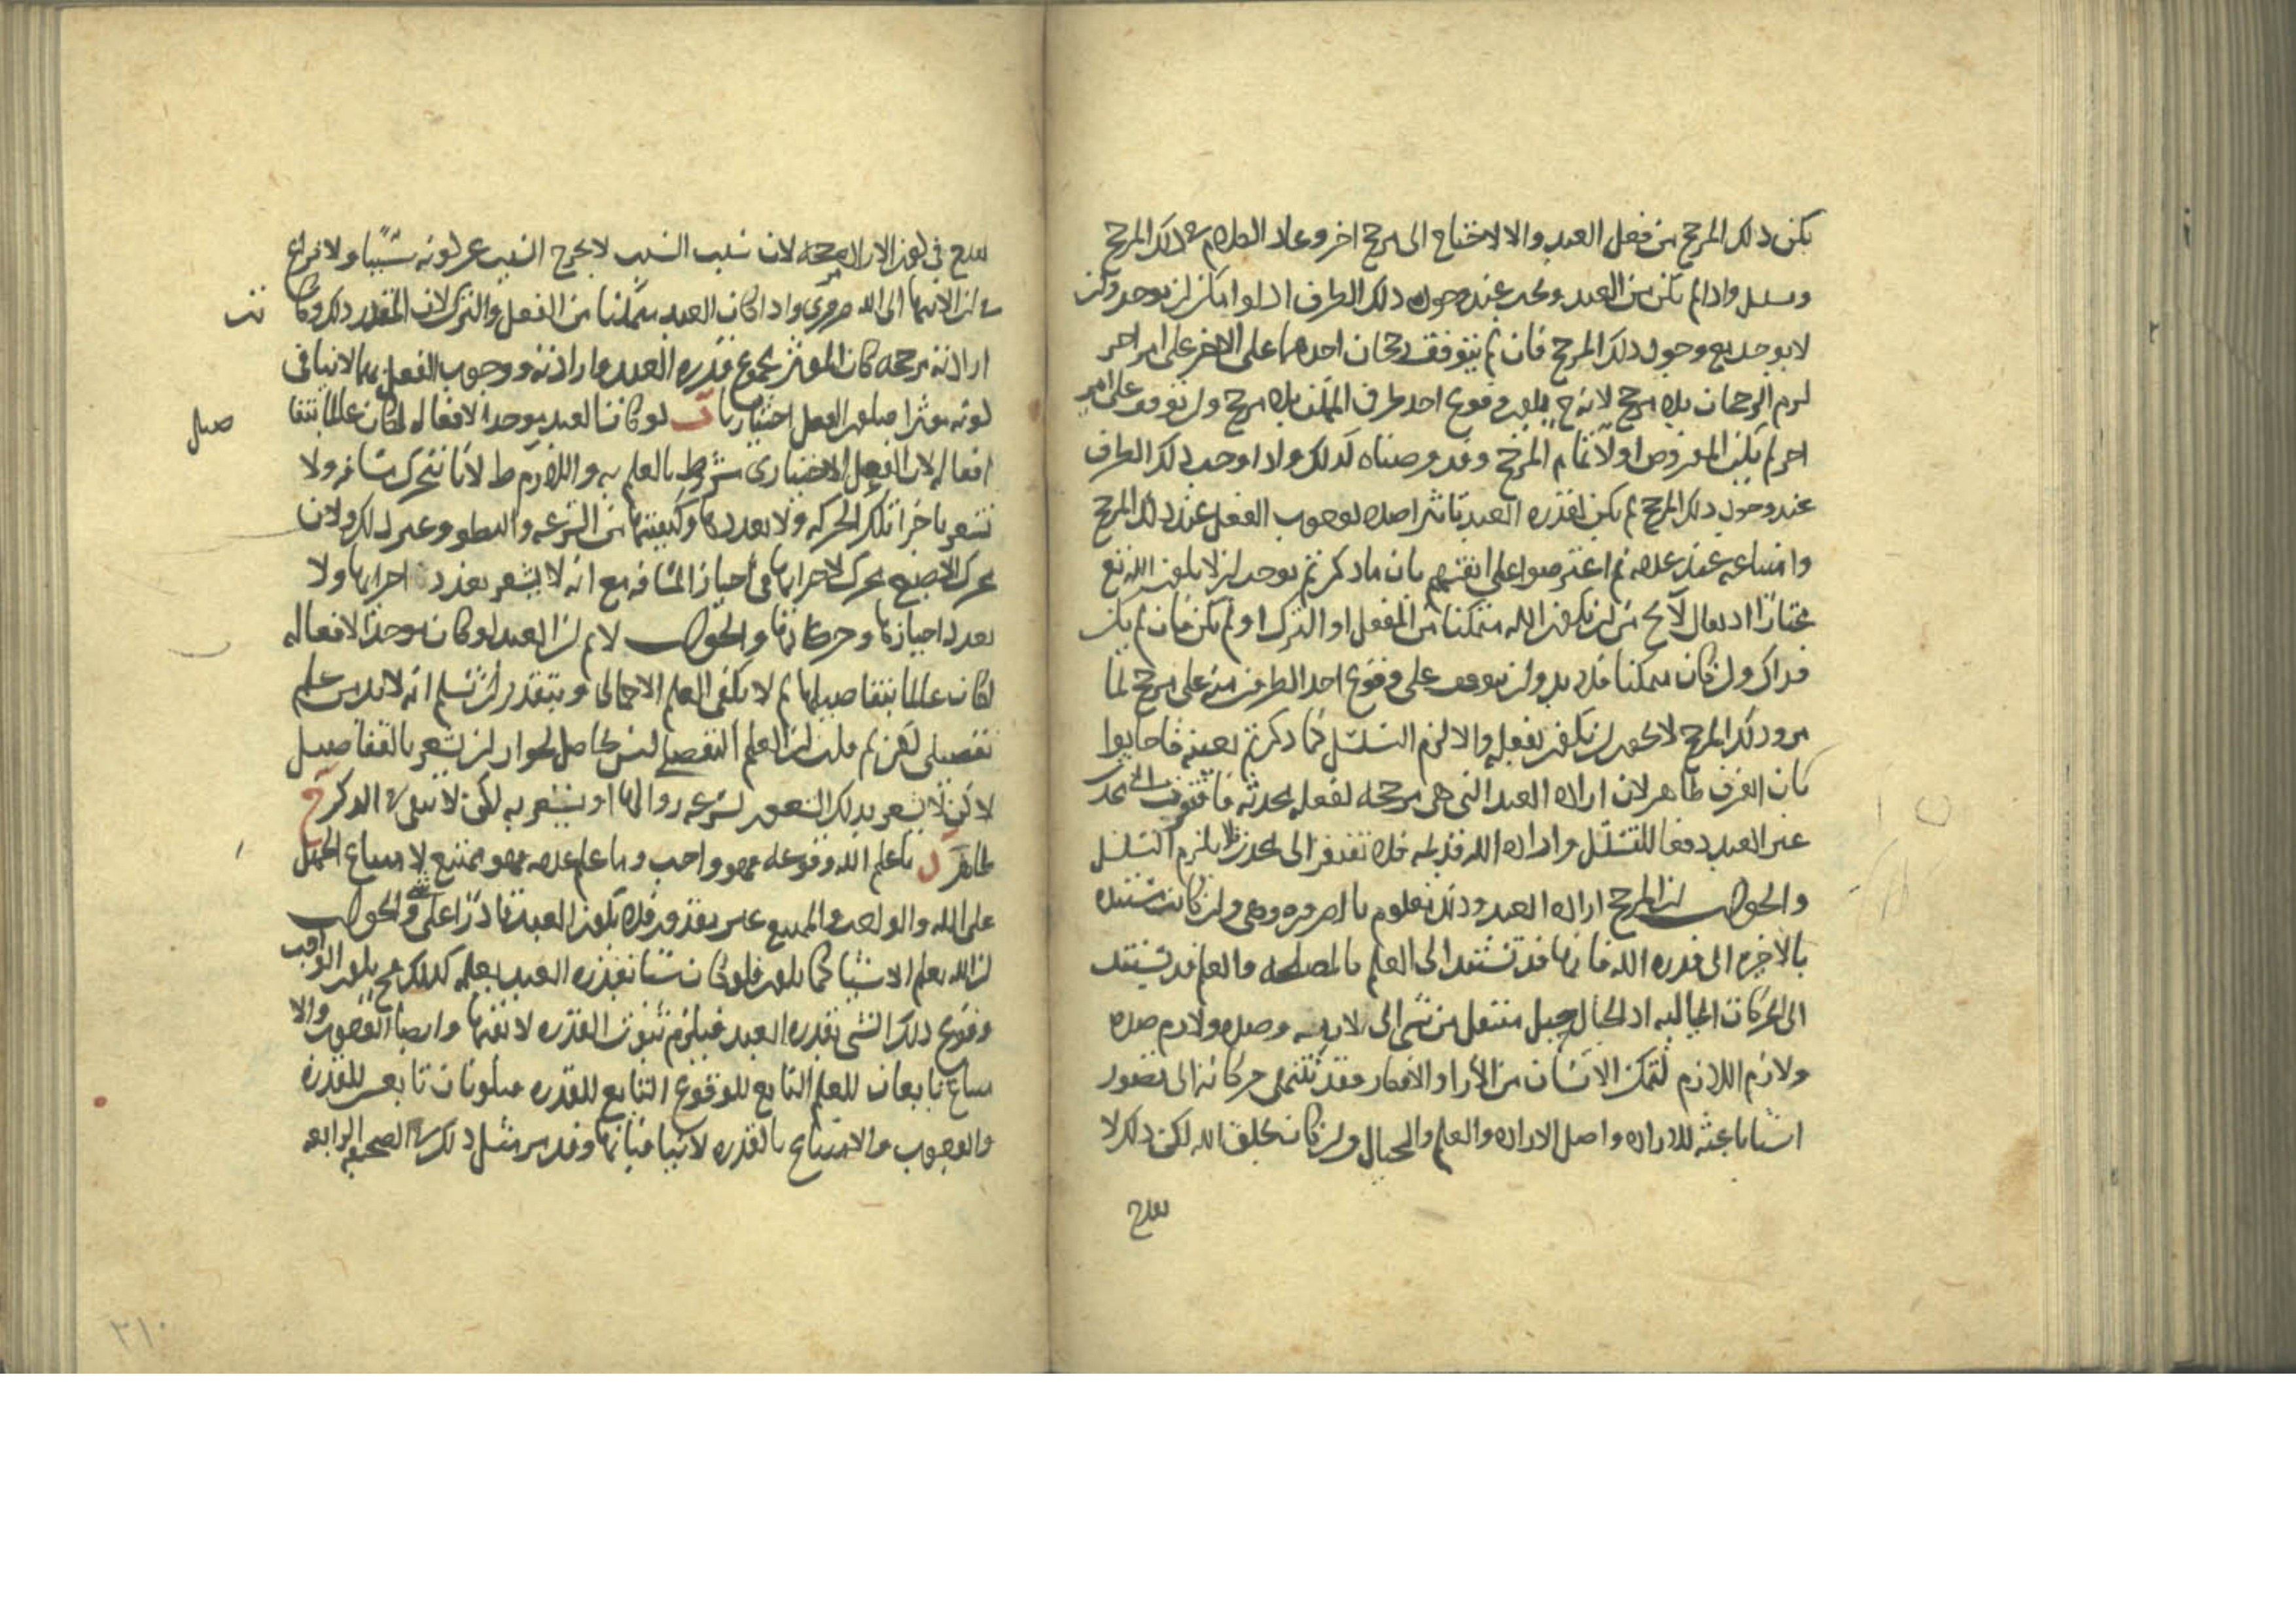 يكن ذلك المرجح من فعل العبد والا لاحتاج الى مرجح اخر وعاد الكلام في ذلك المرجح
وتسلسل واذا لم يكن من العبد ويجب عند حصول ذلك الطرف اذ لو امكن ان يوجد وان
لا يوجد مع وجود ذلك المرجح فان لم يتوقف رجحان احدهما على الاخر على امر اخر
لزم الرجحان بلا مرجح لانه ح يكون وقوع احد طرفي الممكن بلا مرجح وان توقف على امر
اخر لم يكن المفروض اولا تمام المرجح وقد فرضناه كذلك واذا وجب ذلك الطرف
عند وجود ذلك المرجح لم يكن لقدره العبد تاثير اصلا لوجوب الفعل عند ذلك المرجح
وامتناعه عند عدمه ثم اعترضوا على انفسهم بان ما ذكرتم يوجب ان لا يكون الله تع
مختارا اذ يقال لا يخ من ان يكون الله متمكنا من الفعل او الترك او لم يكن فان لم يكن
فذاك وان كان متمكنا فلا بد وان يتوقف على وقوع احد الطرفين منه على مرجح لما
مر وذلك المرجح لا يجوز ان يكون بفعله والا لزم التسلسل كما ذكرتم بعينه فاجابوا
بان الفرق ظاهر لان اراده العبد التي هي مرجحه لفعله محدثه فافتقرت الى محدث
غير العبد دفعا للتسلسل واراده الله قديمه فلا تفتقر الى محدث فلا يلزم التسلسل
والجواب ان المرجح اراده العبد وذلك معلوم بالضروره وهي وان كانت مستنده
بالاخره الى قدره الله فانها قد تستند الى العلم بالمصلحه والعلم قد يستند
الى الحركات الخياليه اذ الخيال جبل منتقل من شى الى لازمه وضده ولازم ضده
ولازم اللازم لتمكن الانسان من الآراء والافكار فقد تنتهى حركاته الى تصور
اشيا باعثه للاراده واصل الاراده والعلم والخيال وان كان بخلق الله لكن ذلك لا
يقدح
يقدح في كون الاراده مرجحه لان سبب السبب لا يخرج السبب عن كونه سببا ولا نزاع
في ان الانتها الى الله ضرورى واذا كان العبد متمكنا من الفعل والترك لان المقدر ذلك وكانت
ارادته مرجحه كان المؤثر مجموع قدره العبد وارادته ووجوب الفعل بهما لا ينافى
كونه مؤثرا فيكون الفعل اختياريا ب لو كان العبد موجدا لافعاله لكان عالما بتفاصيل
افعاله لان الفعل الاختيارى مشروط بالعلم به واللازم ط لانا نتحرك مسافه ولا
نشعر باجزا تلك الحركه ولا بعددها وكيفيتها من السرعه والبطو وغير ذلك ولان
محرك الاصبع محرك لاجزايها في احياز المسافه مع انه لا يشعر بعدد اجزايها ولا
بعدد احيازها وحركاتها والجواب لا نم ان العبد لو كان موجدا لافعاله
لكان عالما بتفاصيلها لم لا يكفى العلم الاجمالى وبتقدير ان نسلم انه لا بد من علم
تفصيلى لكن لم قلت ان العلم التفصيلى ليس بحاصل لجواز ان يشعر بالتفاصيل
لا كن لا يشعر بذلك الشعور لسرعه زوالها او يشعر به لكن لا يبقى في الذكر ج
ظاهر ما علم الله وقوعه فهو واجب وما علم عدمه فهو ممتنع لامتناع الجهل
على الله والواجب والممتنع غير مقدور فلا يكون العبد قادرا على شى والجواب
ان الله يعلم الاشيا كما يكون فلو كان شيا بقدره العبد يعلمه كذلك ح يكون الواقع
وقوع ذلك الشى بقدره العبد فيلزم ثبوت القدره لا نفيها وايضا الوجوب والا
متناع تابعان للعلم التابع للوقوع التابع للقدره فيكونان تابعين للقدره
والوجوب والامتناع بالقدره لا ينافيانها وقد مر مثل ذلك في الصحيفه الرابعه
٢١٠